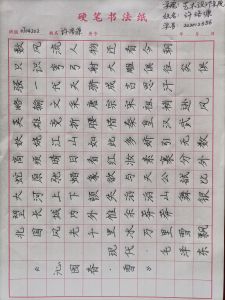 硬笔书法纸
班级
姓名
学院：艺术设计学院
姓名：
学号：
《沁园春·雪
现代·毛泽东
北国风光千里冰万里雪飘
望长城内外惟余莽莽
大河上下顿失滔滔山舞银
蛇原驰蜡象欲与天公试比
高须晴日看红装素裹分外
妖娆江山如此多娇引无数
英雄竞折腰惜秦皇汉武
略输文采唐宗宋祖稍逊风
骚一代天骄成吉思汗
只识弯弓射大雕俱往矣
数风流人物还看今朝